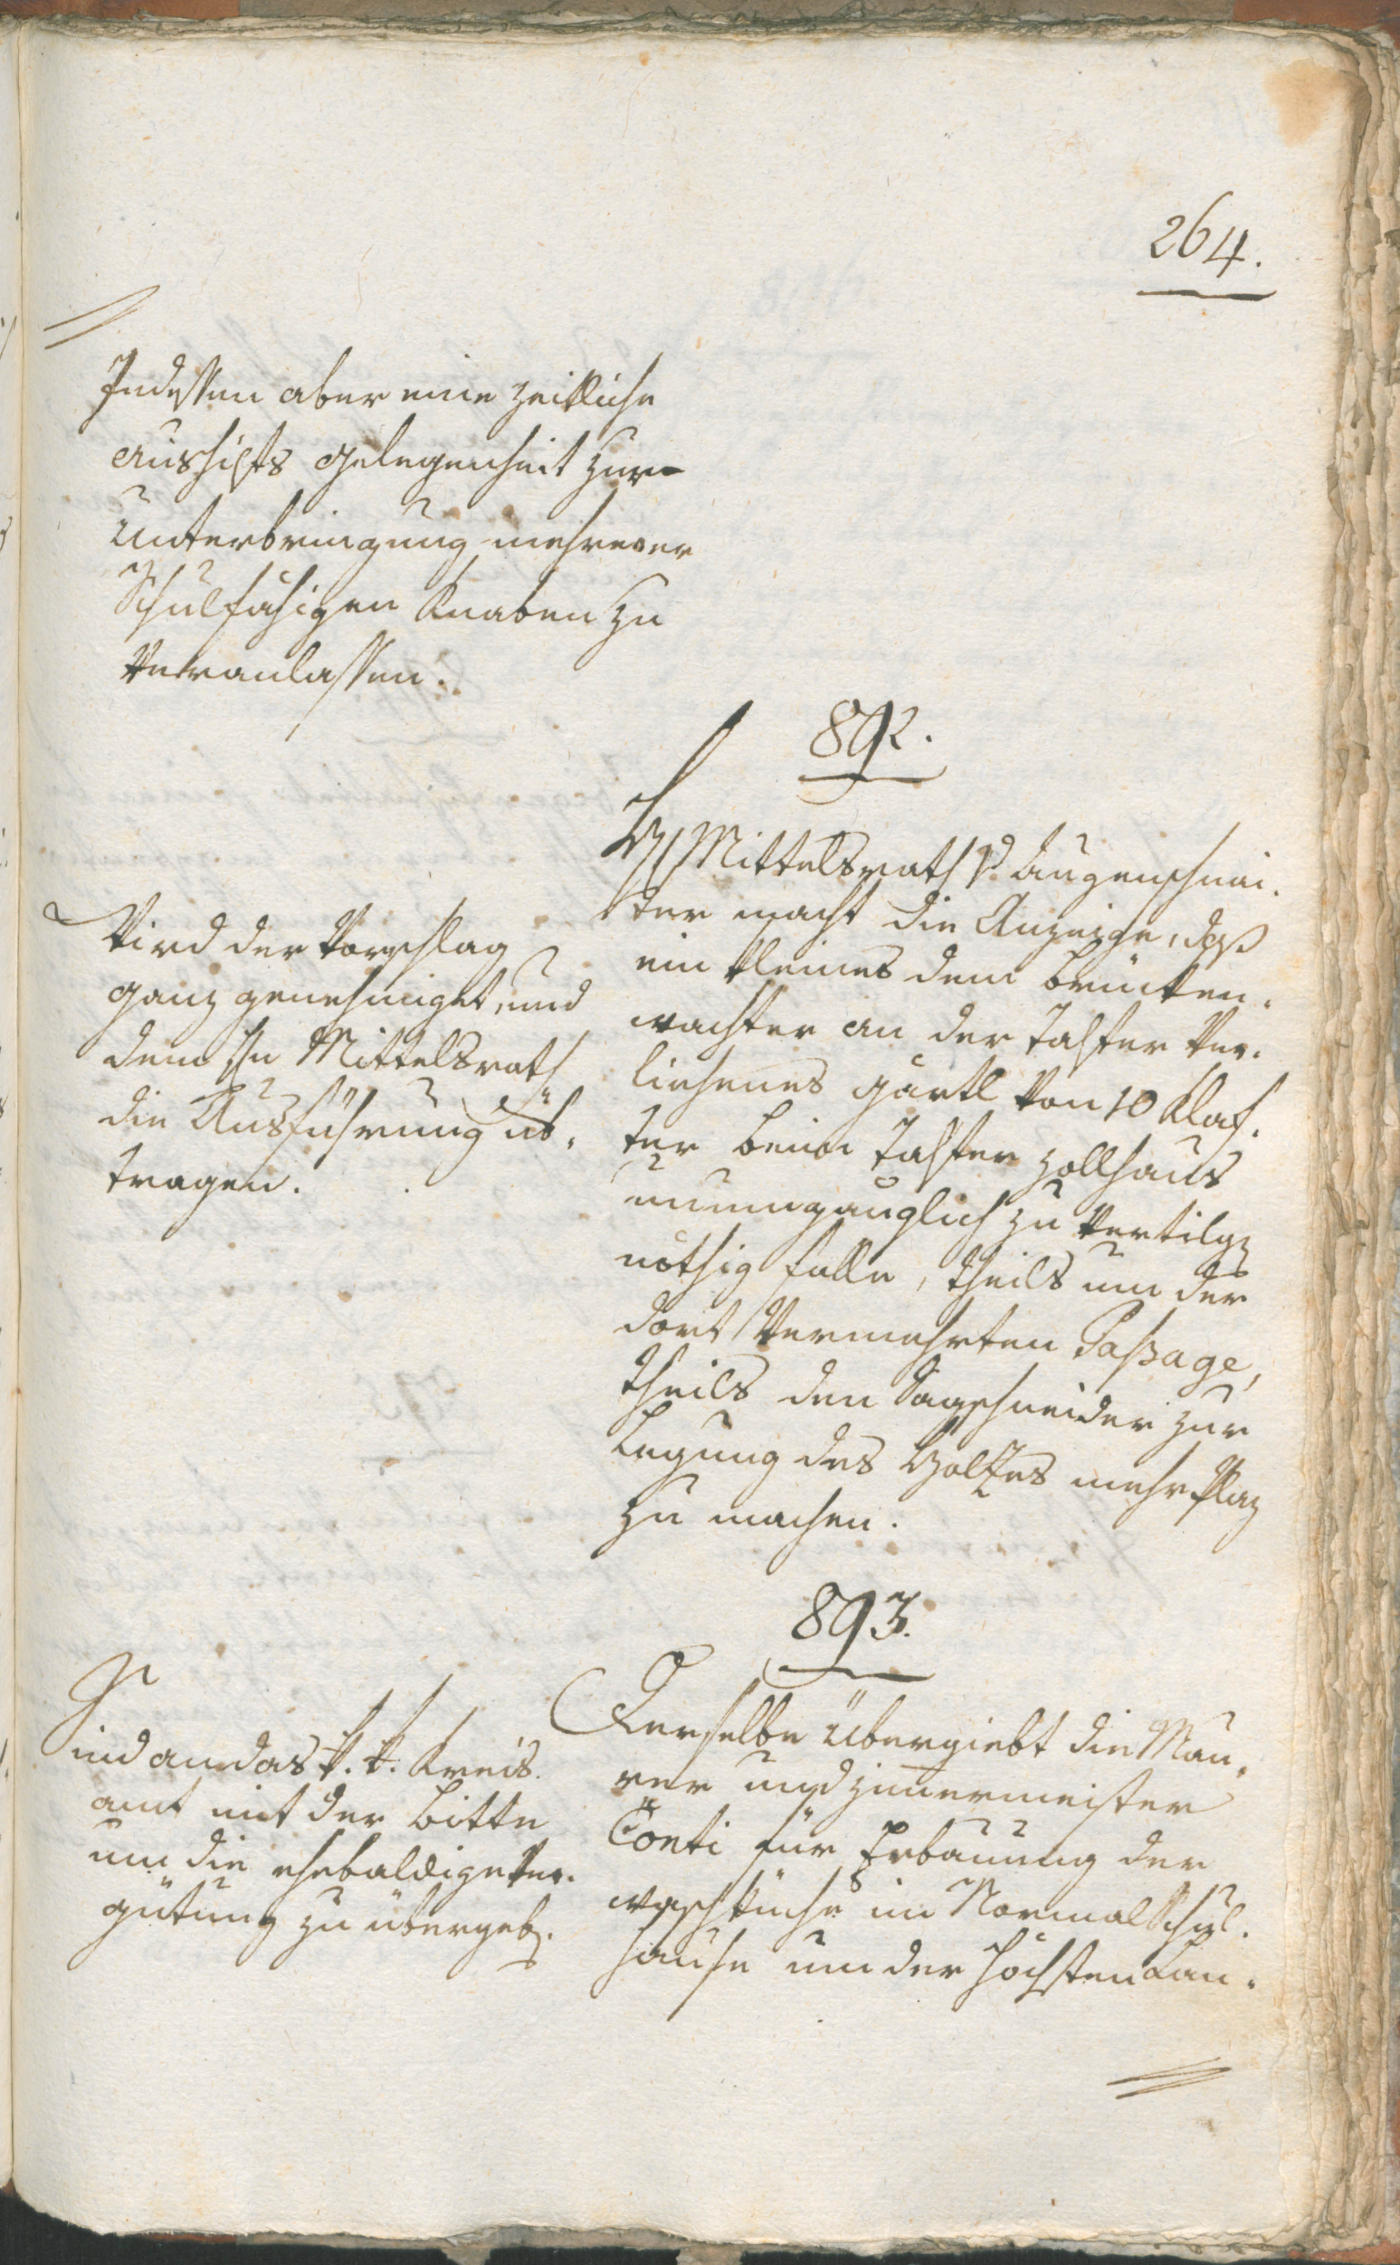 264.
Indessen aber eine zeitliche
aushilfs gelegenheit zur
Unterbringung mehrerer
Schulfähigen Knaben zu
Veranlassen.
892.
H Mittelsrath v Augenschnei-
der macht die Anzeige, daß
ein kleines dem Brücken-
wachter an der Talfer Ver-
liehenes gärtl von 10 Klaf-
ter beim Talfer Zollhaus
unumgänglich zu Vertilgen
nöthig falle, theils um der
dort Vermehrten Paßage,
theils den Sagschneider zur
Legung des Holzes mehr Plaz
zu machen.
Wird der Vorschlag
ganz genehmiget, und
dem Hn Mittelsrath
die Ausführung üb-
tragen.
893.
Derselbe übergiebt die Mau-
rer und Zimermeister
Conti für Erbauung der
waschküche im Normal Schul-
hause um der höchsten Lan-
Sind an das k. k. Kreis-
amt mit der Bitte
um die ehebaldige Ver-
gütung zu übergeben.